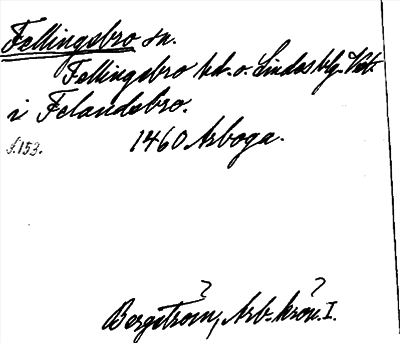 Fellingsbro sn.
Fellingsbro hd. o. Lindes blg. Väst.
i Felandsbro.
s. 153. 1460 Arboga.
? ?
Bergström, Arb. krön. I.